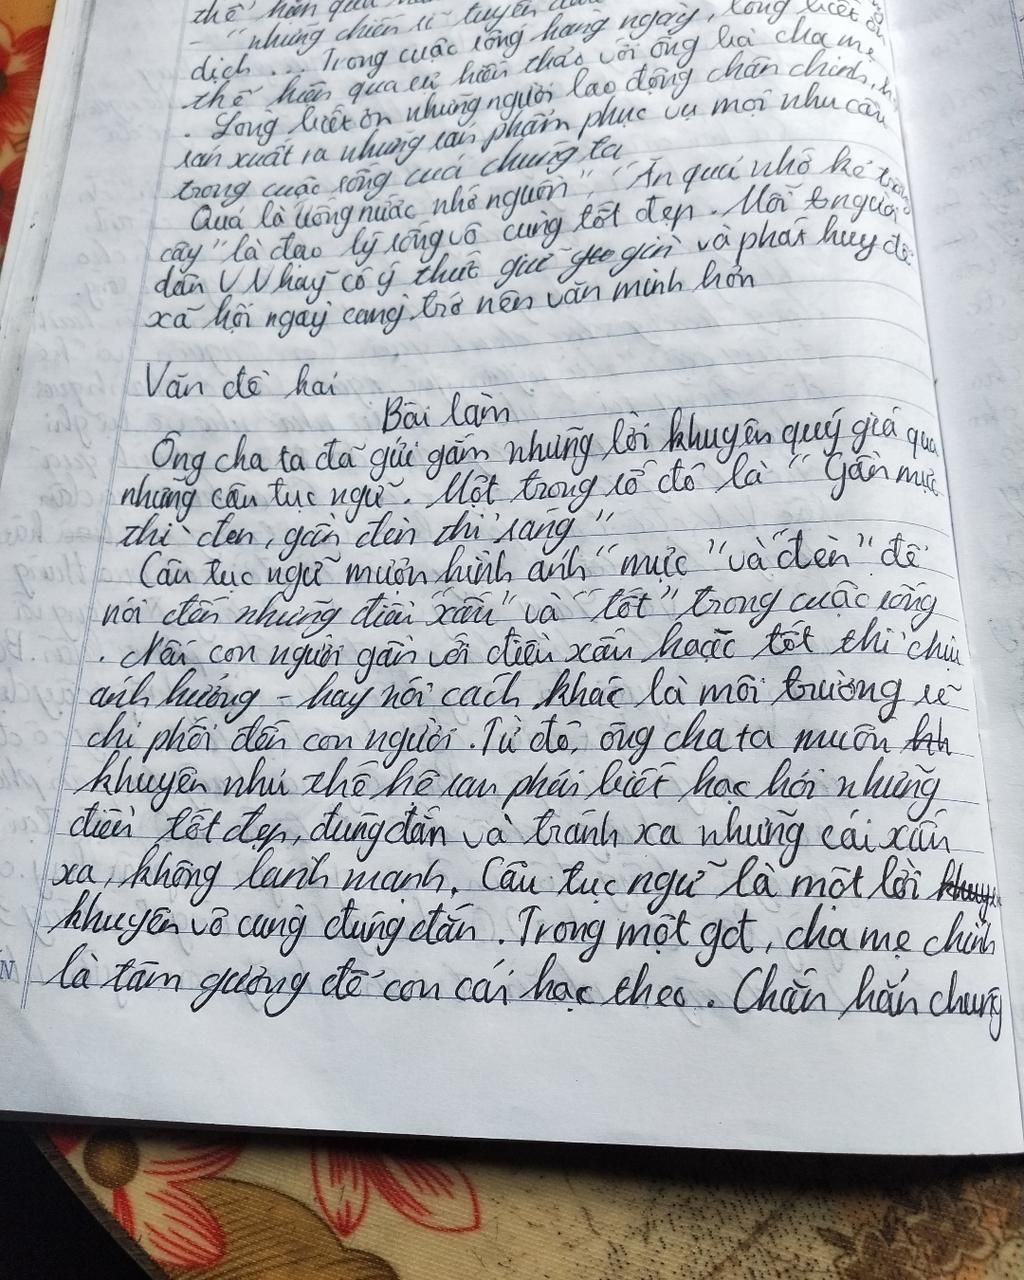 thể hiện qua
- "những chiến sĩ tuyến đầu
dịch... Trong cuộc sống hàng ngày, lòng biết ơn
thể hiện qua sự hiếu thảo với ông bà cha mẹ
. Lòng biết ơn những người lao động chân chính,
sản xuất ra những sản phẩm phục vụ mọi nhu cầu
trong cuộc sống của chúng ta
Quả là "Uống nước nhớ nguồn", "Ăn quả nhớ kẻ trồng
cây" là đạo lý sống vô cùng tốt đẹp. Mỗi người
dân VN hãy có ý thức giữ gìn và phát huy để
xã hội ngày càng trở nên văn minh hơn
Vấn đề hai
Bài làm
Ông cha ta đã gửi gắm những lời khuyên quý giá qua
những câu tục ngữ. Một trong số đó là "Gần mực
thì đen, gần đèn thì sáng"
Câu tục ngữ mượn hình ảnh "mực" và "đèn" để
nói đến những điều "xấu" và "tốt" trong cuộc sống
. Nếu con người gần với điều xấu hoặc tốt thì chịu
ảnh hưởng - hay nói cách khác là môi trường sẽ
chi phối đến con người. Từ đó, ông cha ta muốn
khuyên nhủ thế hệ sau phải biết học hỏi những
điều tốt đẹp, đúng đắn và tránh xa những cái xấu
xa, không lành mạnh. Câu tục ngữ là một lời
khuyên vô cùng đúng đắn. Trong một gđ, cha mẹ chính
là tấm gương để con cái học theo. Chắn hẳn chúng